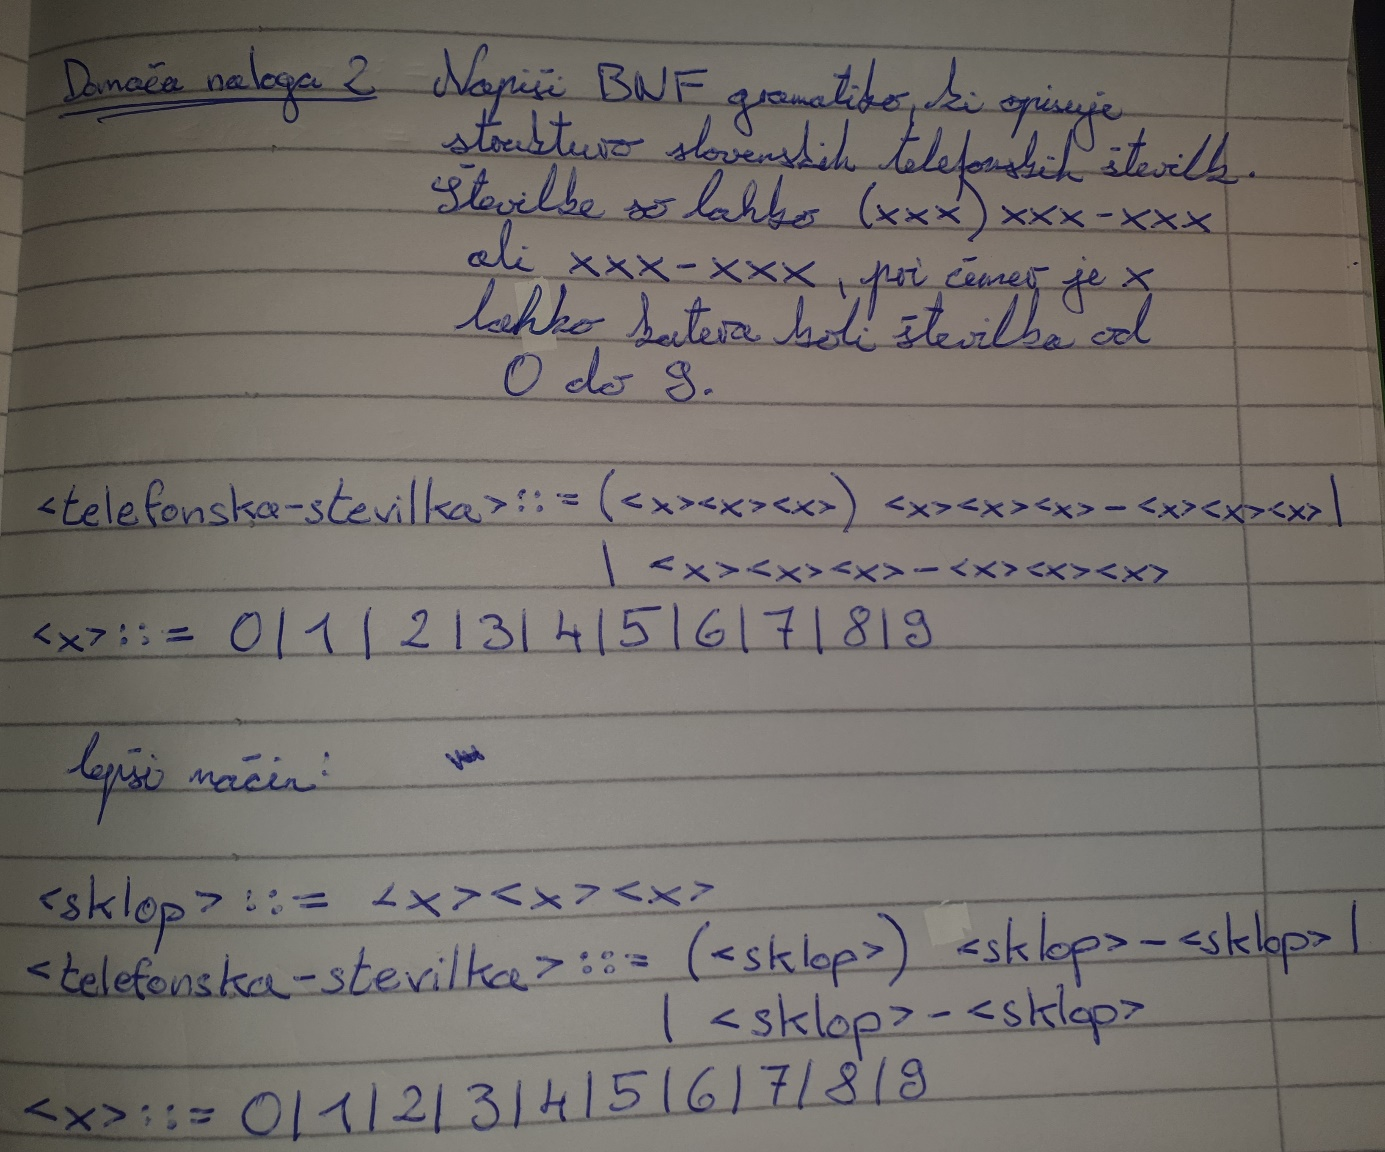 Domača naloga 2 Napiši BNF gramatiko, ki opisuje
strukturo slovenskih telefonskih številk.
Številke so lahko (xxx) xxx-xxx
ali xxx-xxx, pri čemer je x
lahko katera koli številka od
0 do 9.
<telefonska-stevilka>::= (<x><x><x>) <x><x><x>-<x><x><x>|
| <x><x><x>-<x><x><x>
<x>::= 0|1|2|3|4|5|6|7|8|9
lepši način:
<sklop>::= <x><x><x>
<telefonska-stevilka>::= (<sklop>) <sklop>-<sklop>|
| <sklop>-<sklop>
<x>::= 0|1|2|3|4|5|6|7|8|9